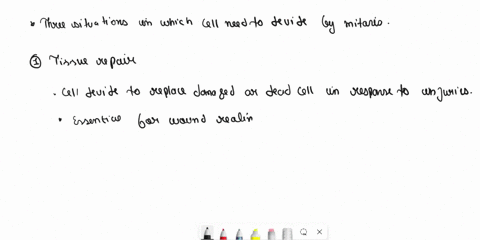 • Three situations in which cell need to devide by mitosis.
① Tissue repair
• Cell devide to replace damaged or dead cell in response to injuries.
• Essential for wound realin